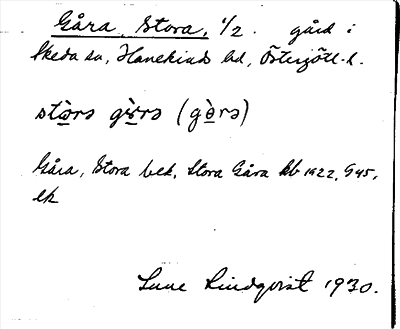 Gåra, Stora, 1/2. gård i
Skeda sn, Hanekinds hd, Östergötl. l.
stò̤rə gɤ̀rə (gə̀rə)
Gåra, Stora bek. Stora Gåra kb 1922, 945,
ek
Sune Lindqvist 1930.